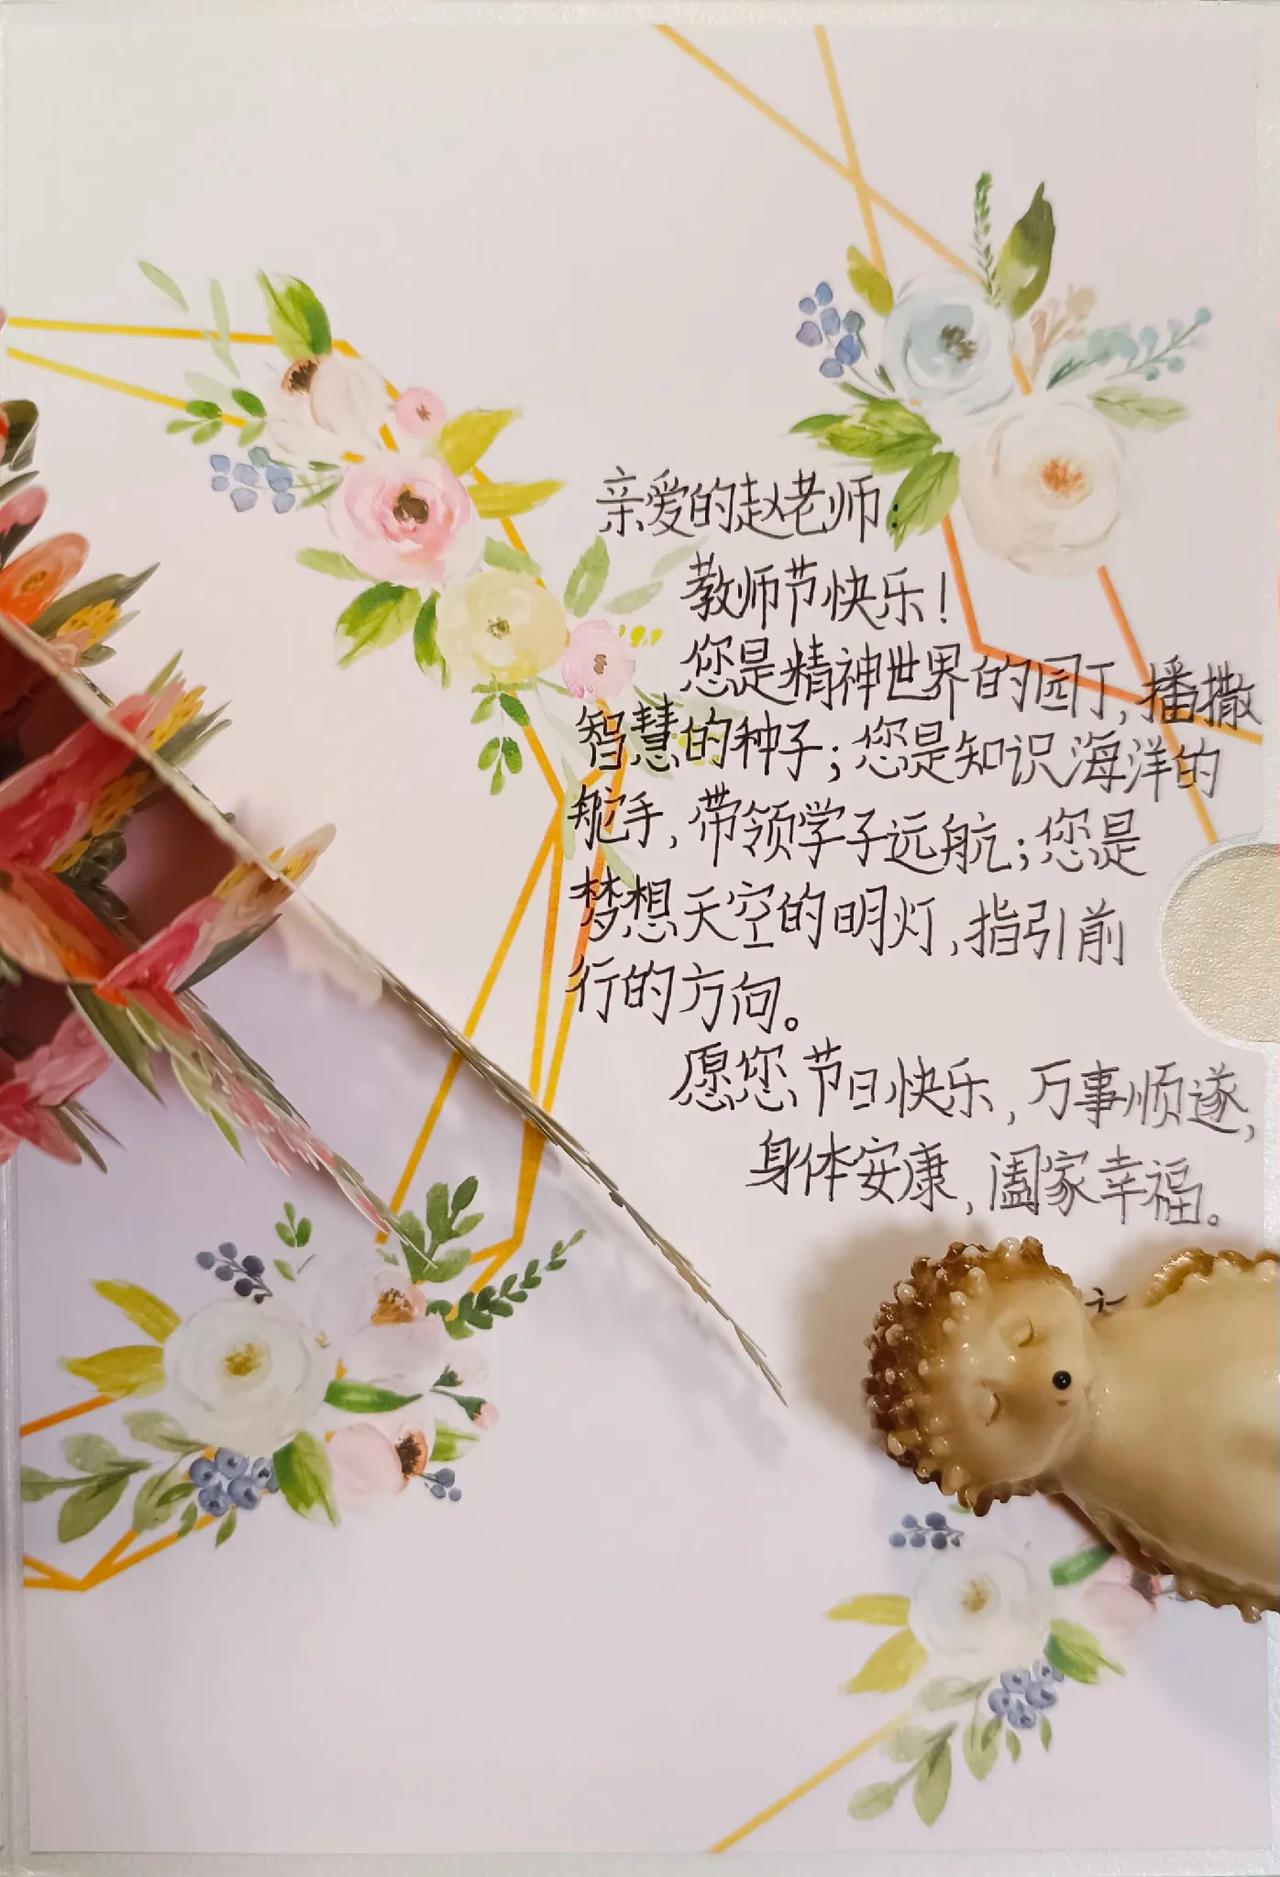 亲爱的赵老师:
教师节快乐!
您是精神世界的园丁,播撒
智慧的种子;您是知识海洋的
舵手,带领学子远航;您是
梦想天空的明灯,指引前
行的方向。
愿您节日快乐,万事顺遂,
身体安康,阖家幸福。